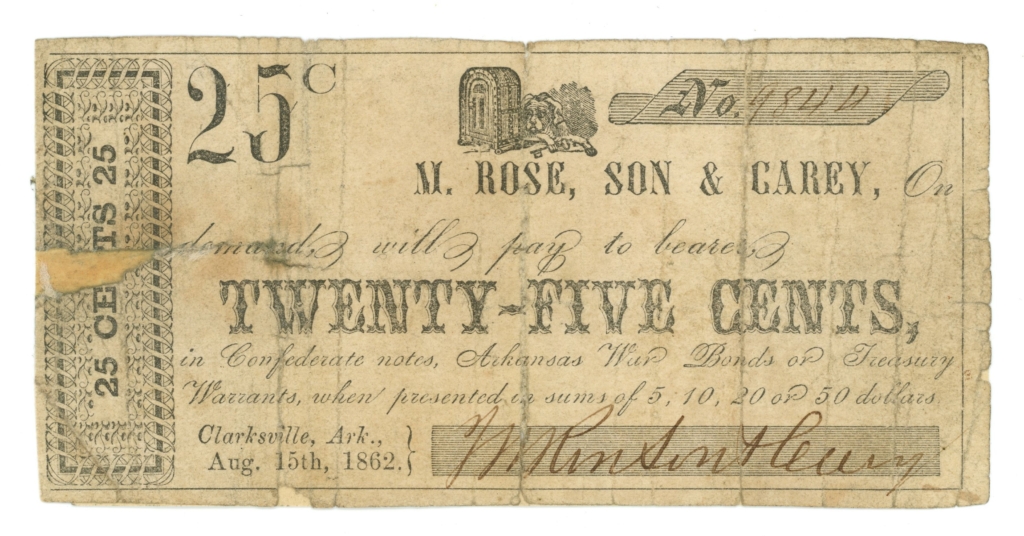 25 CENTS 25
25C
No. 9844
M. ROSE, SON & CAREY, On
demand, will pay to bearer
TWENTY-FIVE CENTS,
in Confederate notes, Arkansas War Bonds or Treasury
Warrants, when presented in sums of 5, 10, 20 or 50 dollars.
Clarksville, Ark.,
Aug. 15th, 1862.
M Rose Son & Carey